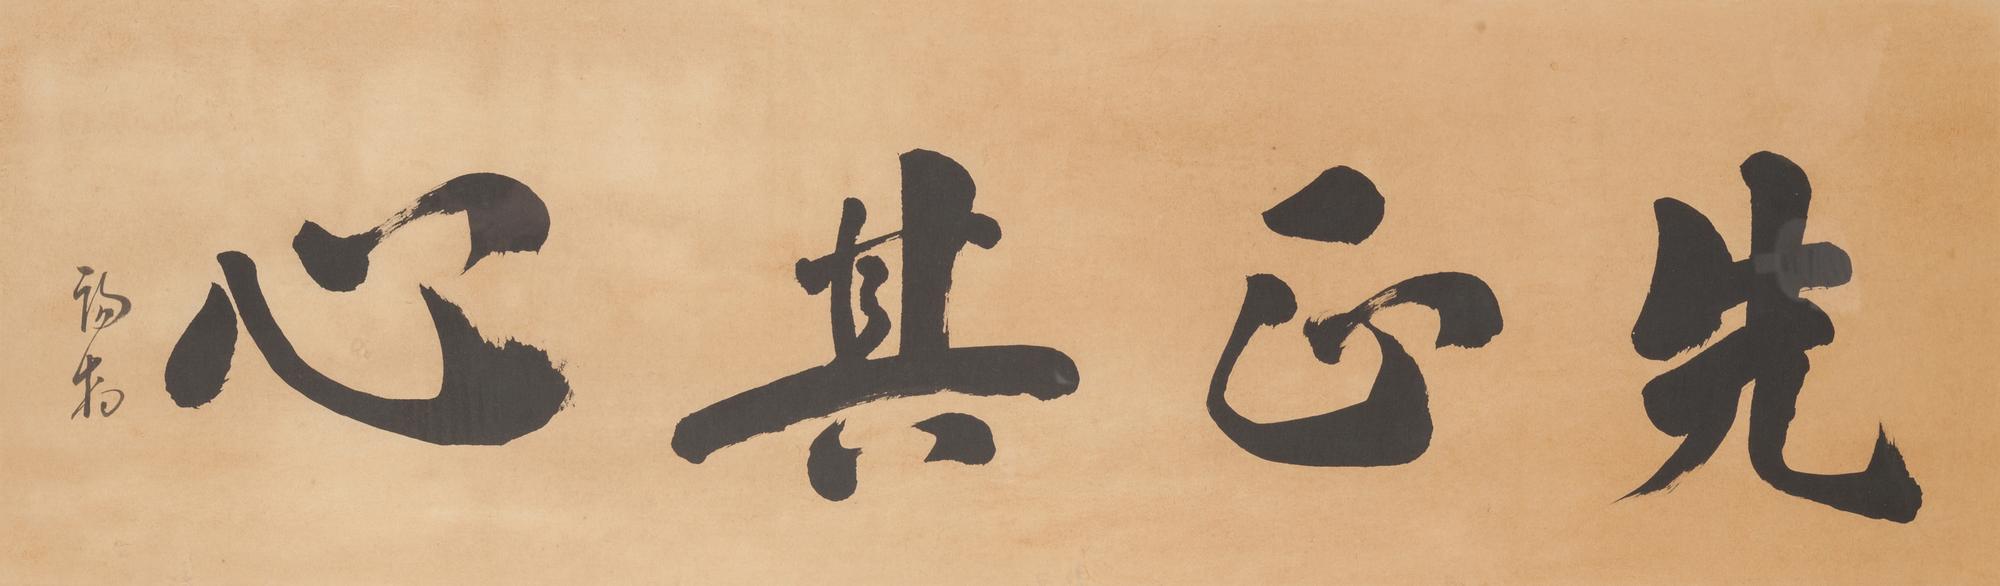 先正其心